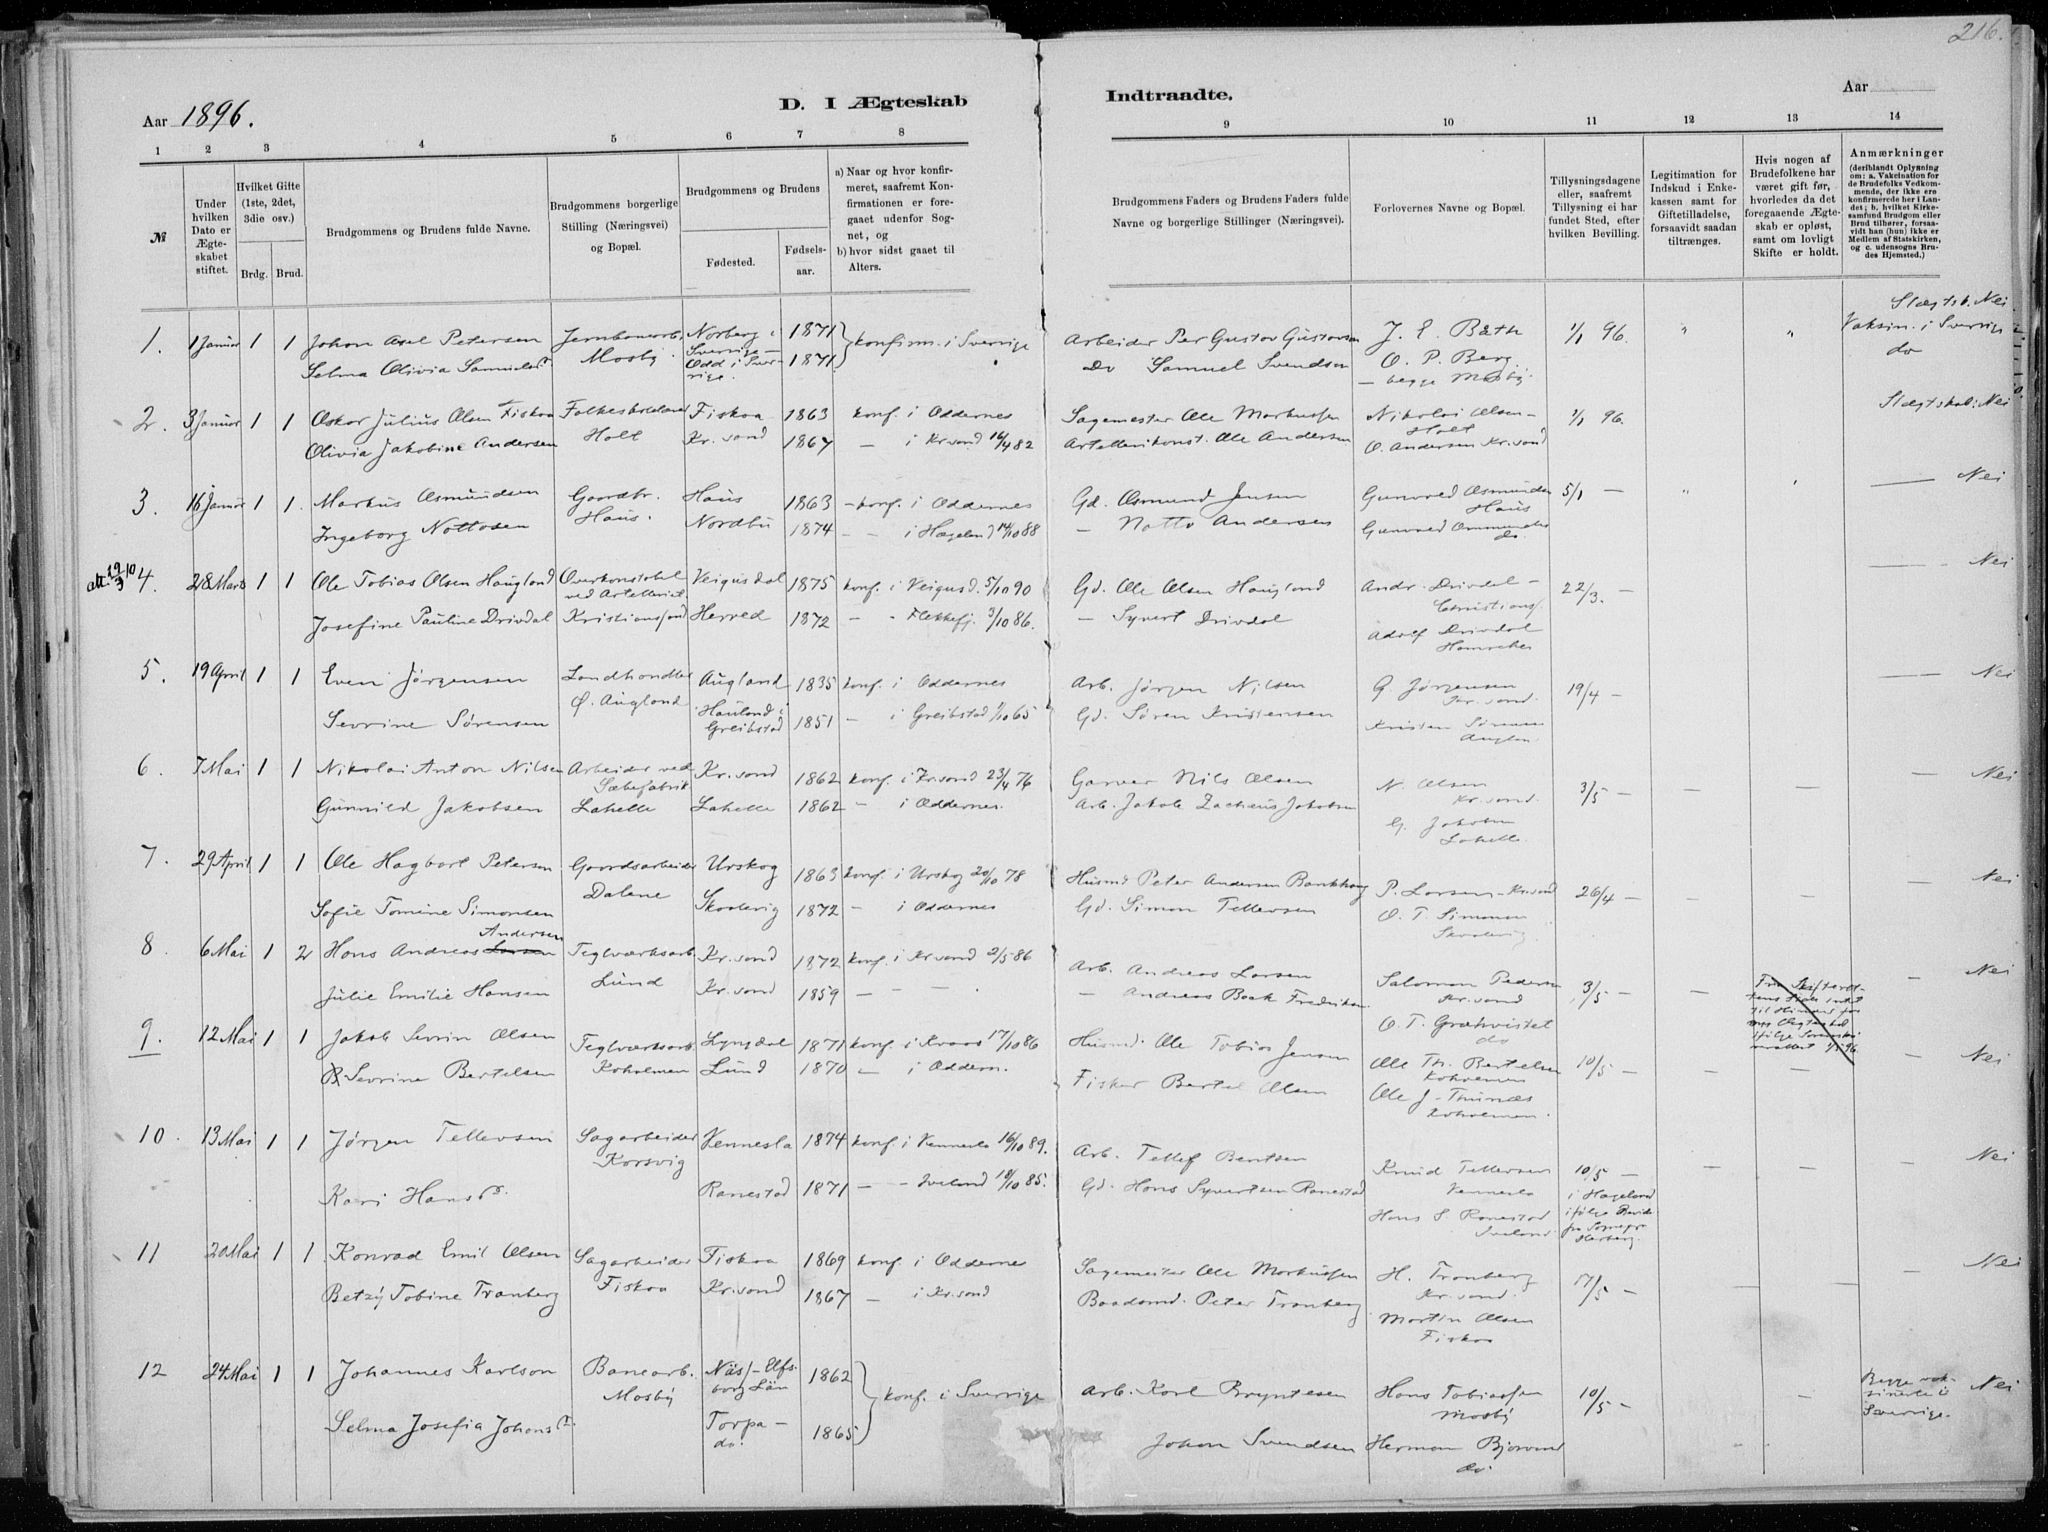 216.
D. I Ægteskab Indtraadte.
Aar 1896.
Aar
1 2 3 4 5 6 7 8 9 10 11 12 13 14
№
Under hvilken Dato er Ægteskabet stiftet.
Hvilket Gifte (1ste, 2det, 3die osv.)
Brdg. Brud.
Brudgommens og Brudens fulde Navne.
Brudgommens borgerlige Stilling (Næringsvei) og Bopæl.
Brudgommens og Brudens
Fødested. Fødselsaar.
a) Naar og hvor konfirmeret, saafremt Konfirmationen er foregaaet udenfor Sognet, og
b) hvor sidst gaaet til Alters.
Brudgommens Faders og Brudens Faders fulde Navne og borgerlige Stillinger (Næringsvei).
Forlovernes Navne og Bopæl.
Tillysningsdagene eller, saafremt Tillysning ei har fundet Sted, efter hvilken Bevilling.
Legitimation for Indskud i Enkekassen samt for Giftetilladelse, forsaavidt saadan tiltrænges.
Hvis nogen af Brudefolkene har været gift før, hvorledes da det foregaaende Ægteskab er opløst, samt om lovligt Skifte er holdt.
Anmærkninger
(deriblandt Oplysning om: a. Vakcination for de Brudefolks Vedkommende, der ikke ere konfirmerede her i Landet; b. hvilket Kirkesamfund Brudgom eller Brud tilhører, forsaavidt han (hun) ikke er Medlem af Statskirken, og c. udensogns Brudes Hjemsted.)
1. 1 Januar 1 1 Johan Axel Petersen Jernbanearb. Norberg i Sverige 1871 konfirm. i Sverrige Arbeider Per Gustav Gustavsen J. E. Bæth 1/1 96. " " Slægtsk. Nei
Selma Olivia Samuelsd. Mosby. Odd i Sverrige. 1871 Do Samuel Svendsen O. P. Berg – begge Mosby Vaksin. i Sverrige do
2. 3 Januar 1 1 Oskar Julius Olsen Fiskaa Holt Fiskaa 1863 konf. i Oddernes Sagemester Ole Markussen Nikolai Olsen Holt 1/1 96. Slægtskab: Nei
Olivia Jakobine Andersen Kr. sand 1867 – i Kr. sand 16/4 82 Artellerikonst. Ole Andersen O. Andersen Kr. sand
3. 16 Januar 1 1. Markus Osmundsen Gaardbr. Haus 1863 – konf. i Oddernes Gd. Osmund Jensen Gunvald Osmundsen Haus 5/1 – " Nei
Ingeborg Nottosen Haus. Nordbu 1874 – – i Hægeland 14/10 88 – Notto Andersen do.
4. 28 Marts 1 1 Ole Tobias Olsen Haugland Overkonstabel ved Artelleriet Veigusdal 1875 konf. i Veigusd. 5/10 90 Gd. Ole Olsen Haugland Andr. Drivdal – Christians. 22/3. – Nei
Josefine Pauline Drivdal Kristianssand Herred 1872 – - Flekkefj. 3/10 86. – Syvert Drivdal Adolf Drivdal
5. 19 April 1 1 Even Jørgensen Landhandler Augland 1835 konf. i Oddernes Arb. Jørgen Nilsen G. Jørgensen Kr. sand. 19/4 – Nei
Sevrine Sørensen Ø. Augland Hauland i Greibstad 1851 – i Greibstad 1/10 65 Gd. Søren Kristensen Kristen Sørensen
6. 7 Mai 1 1 Nikolai Anton Nilsen Arbeider ved Sæbefabrik Kr. sand 1862 konf. i Kr. sand 23/4 76 Garver Nils Olsen N. Olsen Kr. sand. 3/5 – – – – Nei
Gunnild Jakobsen Lahelle Lahelle 1862 – i Oddernes. Arb. Jakob Zacheus Jakobsen G. Jakobsen Lahelle
7. 29 April 1 1 Ole Hagbart Petersen Gaardsarbeider Urskog 1863 konf. i Urskog 20/10 78 Husmd. Peter Andersen Bankhaug P. Larsen – Kr. sand 26/4 – – – – Nei
Sofie Tomine Simonsen Dalene Skaalevig 1872 – i Oddernes Gd. Simon Tellevsen O. T. Simonsen Skaalevig
8. 6 Mai 1 2 Hans Andreas Larsen Andersen Teglværksarb. Kr. sand 1872 konf. i Kr. sand 2/5 86 Arb. Andreas Larsen Salomon Pedersen Kr. sand 3/5 – – – Nei
Julie Emilie Hansen Lund Kr. sand 1859 – – – . – Andreas Bock Fredriksen O. T. Grahvistel do
9. 12 Mai 1 1 Jakob Sevrin Olsen Teglværksarb. Lyngdal 1871 konf. i Kvaas 17/10 86 Husmd. Ole Tobias Jensen Ole Th. Bertelsen Koholmen 10/5 – – – – Nei
B. Sevrine Bertelsen Koholmen Lund 1870 – i Oddern. Fisker Bertel Olsen Ole J. Thunæs Koholmen.
10. 13 Mai 1 1 Jørgen Tellevsen Sagarbeider Vennesla 1874 konf. i Vennesla 16/10 89. Arb. Tellef Bentsen Knud Tellevsen Vennesla 10/5 – i Hægeland ifølge – – – Nei
Kari Hansd. Korsvig Ranestad 1871 – - Iveland 10/10 85. Gd. Hans Syvertsen Ranestad Hans S. Ranestad Iveland
11 20 Mai 1 1. Konrad Emil Olsen Sagarbeider Fiskaa 1869 konf. i Oddernes Sagemester Ole Markussen H. Tranberg Kr. sand. 17/5 – – – – Nei
Betzy Tobine Tranberg Fiskaa Kr. sand 1867 – i Kr. sand Baadsmd. Peter Tranberg Martin Olsen Fiskaa
12 24 Mai 1 1 Johannes Karlson Banearb. Näs/– Elfsborg Län 1862 konf. i Sverrige Arb. Karl Bryntesen Hans Tobiassen Mosby 10/5 – – Begge vaksinerte i Sverrige. Nei
Selma Josefia Johansd. Mosby Torpa – do. 1865 Johan Svendsen Herman Bjorvand do.